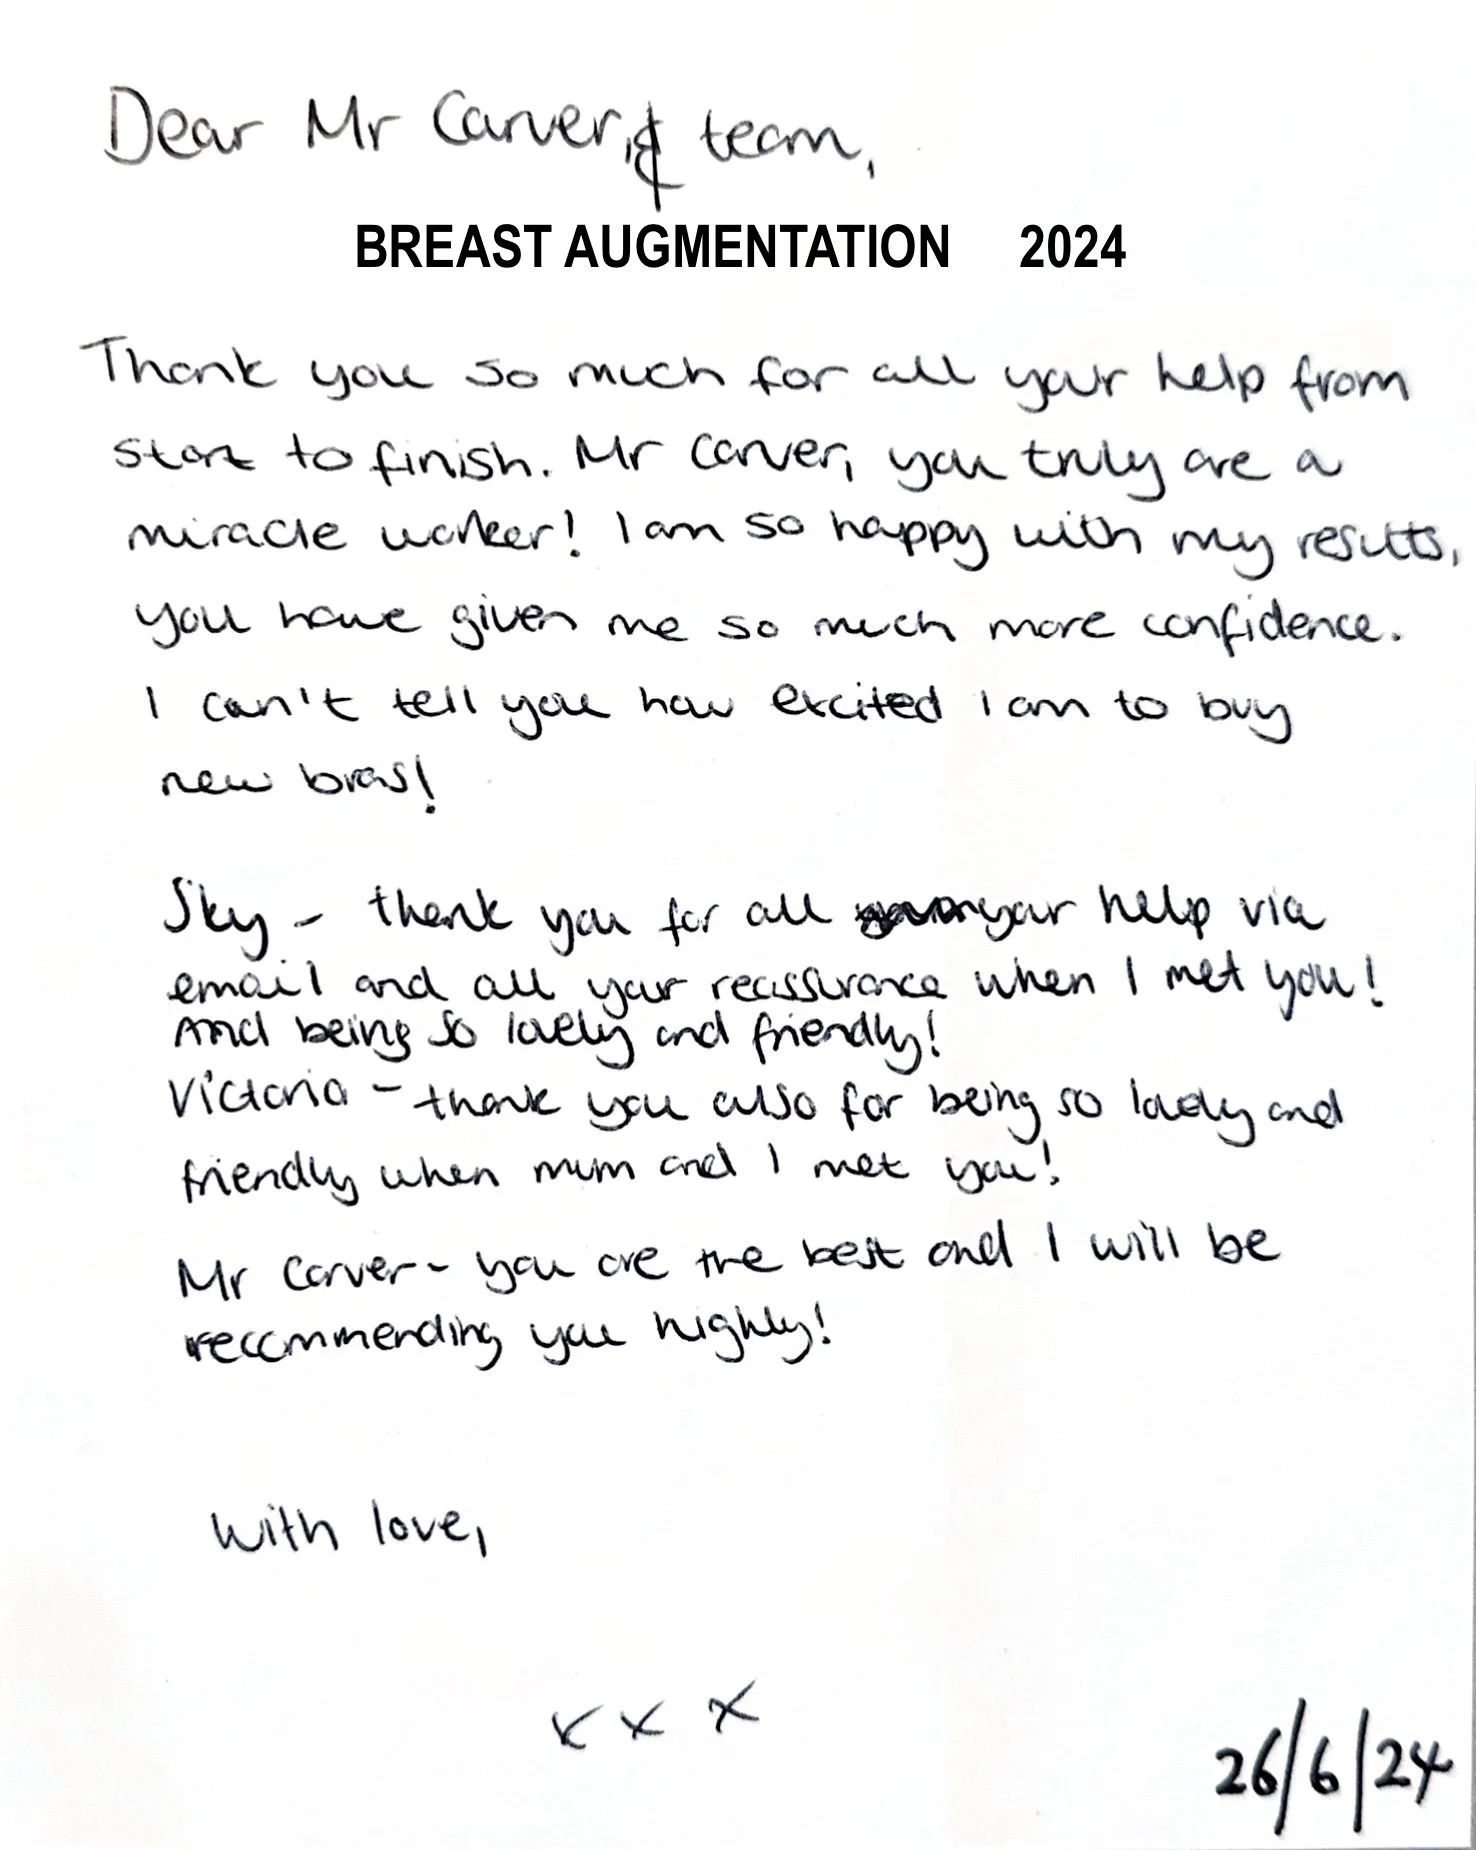 Dear Mr Carver, & team,
BREAST AUGMENTATION 2024
Thank you so much for all your help from
start to finish. Mr Carver, you truly are a
miracle worker! I am so happy with my results,
you have given me so much more confidence.
I can't tell you how excited I am to buy
new bras!
Sky - thank you for all your help via
email and all your reassurance when I met you!
And being so lovely and friendly!
Victoria - thank you also for being so lovely and
friendly when mum and I met you!
Mr Carver - you are the best and I will be
recommending you highly!
With love,
x x x
26/6/24